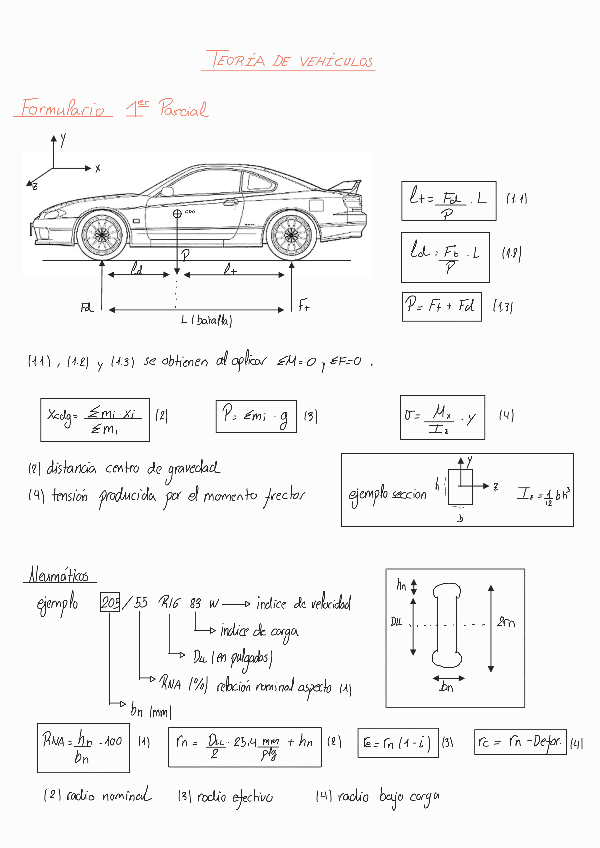 TEORÍA DE VEHÍCULOS
Formulario 1er Parcial
y
x
z
CDG
P
ld
lt
Fd
Ft
L (batalla)
lt = Fd/P · L (1.1)
ld = Ft/P · L (1.2)
P = Ft + Fd (1.3)
(1.1), (1.2) y (1.3) se obtienen al aplicar ΣM=0 y ΣF=0.
Xcdg = Σmi·xi / Σmi (2)
P = Σmi · g (3)
σ = Mx/Iz · y (4)
(2) distancia centro de gravedad
(4) tensión producida por el momento flector
ejemplo sección
h
b
y
z
Iz = 1/12 bh³
Neumáticos
ejemplo 205 / 55 R16 83 W → índice de velocidad
índice de carga
Du (en pulgadas)
RNA (%) relación nominal aspecto (1)
bn (mm)
hn
Du
2rn
bn
RNA = hn/bn · 100 (1)
rn = Du/2 · 25,4 mm/plg + hn (2)
re = rn (1 - i) (3)
rc = rn - Defor. (4)
(2) radio nominal (3) radio efectivo (4) radio bajo carga